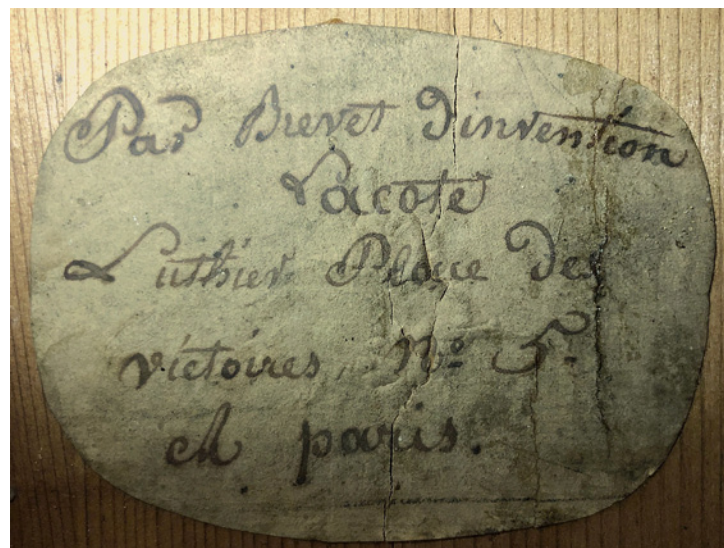 Par Brevet D'invention
Lacote
Luthier Place Des
victoires, N.º 5.
A paris.